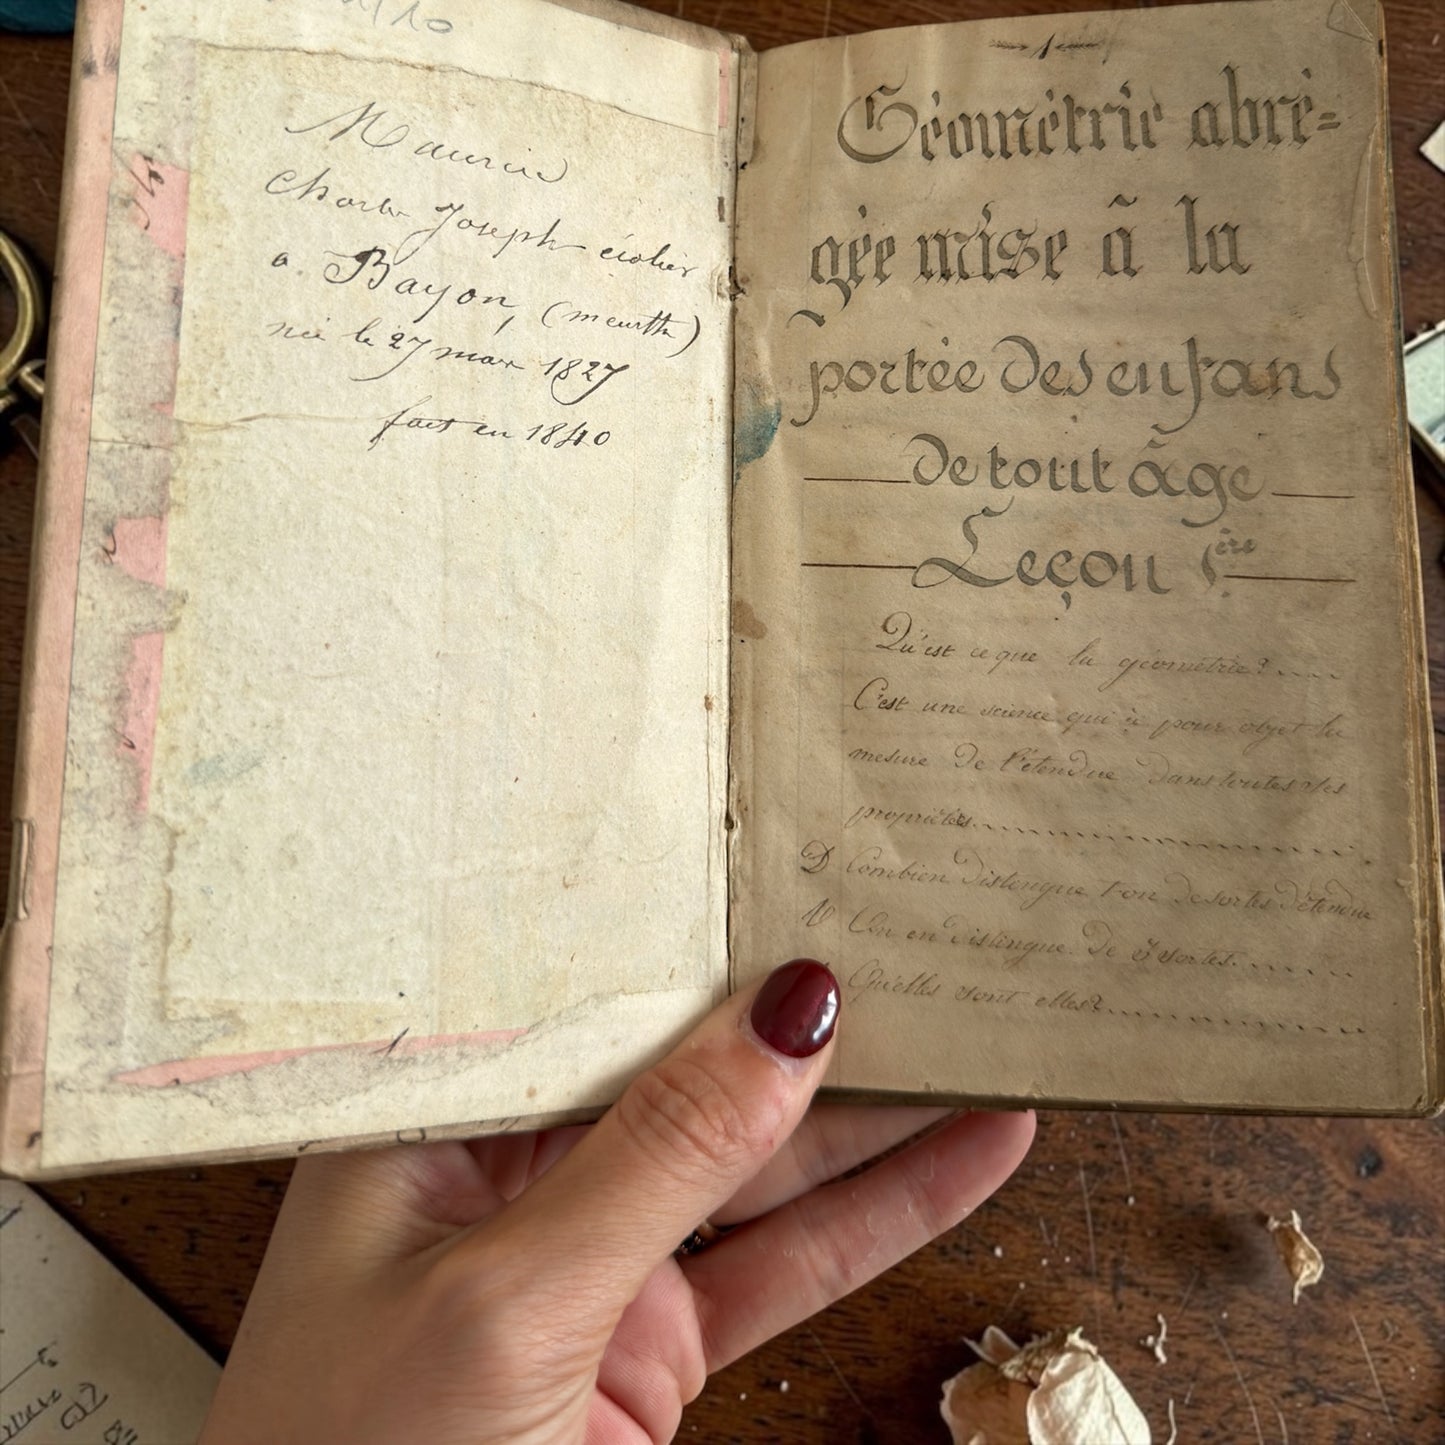 Maurice
Charles Joseph écolier
a Bayon, (meurthe)
née le 27 mars 1827
fait en 1840
1
Géométrie abré=
gée mise à la
portée des enfans
de tout âge
Leçon 1ère
Qu'est ce que la géométrie?
C'est une science qui a pour objet la
mesure de l'étendue dans toutes ses
propriétés
D Combien distingue t'on de sortes d'étendue
R On en distingue de 3 sortes.
Qu'elles sont elles?